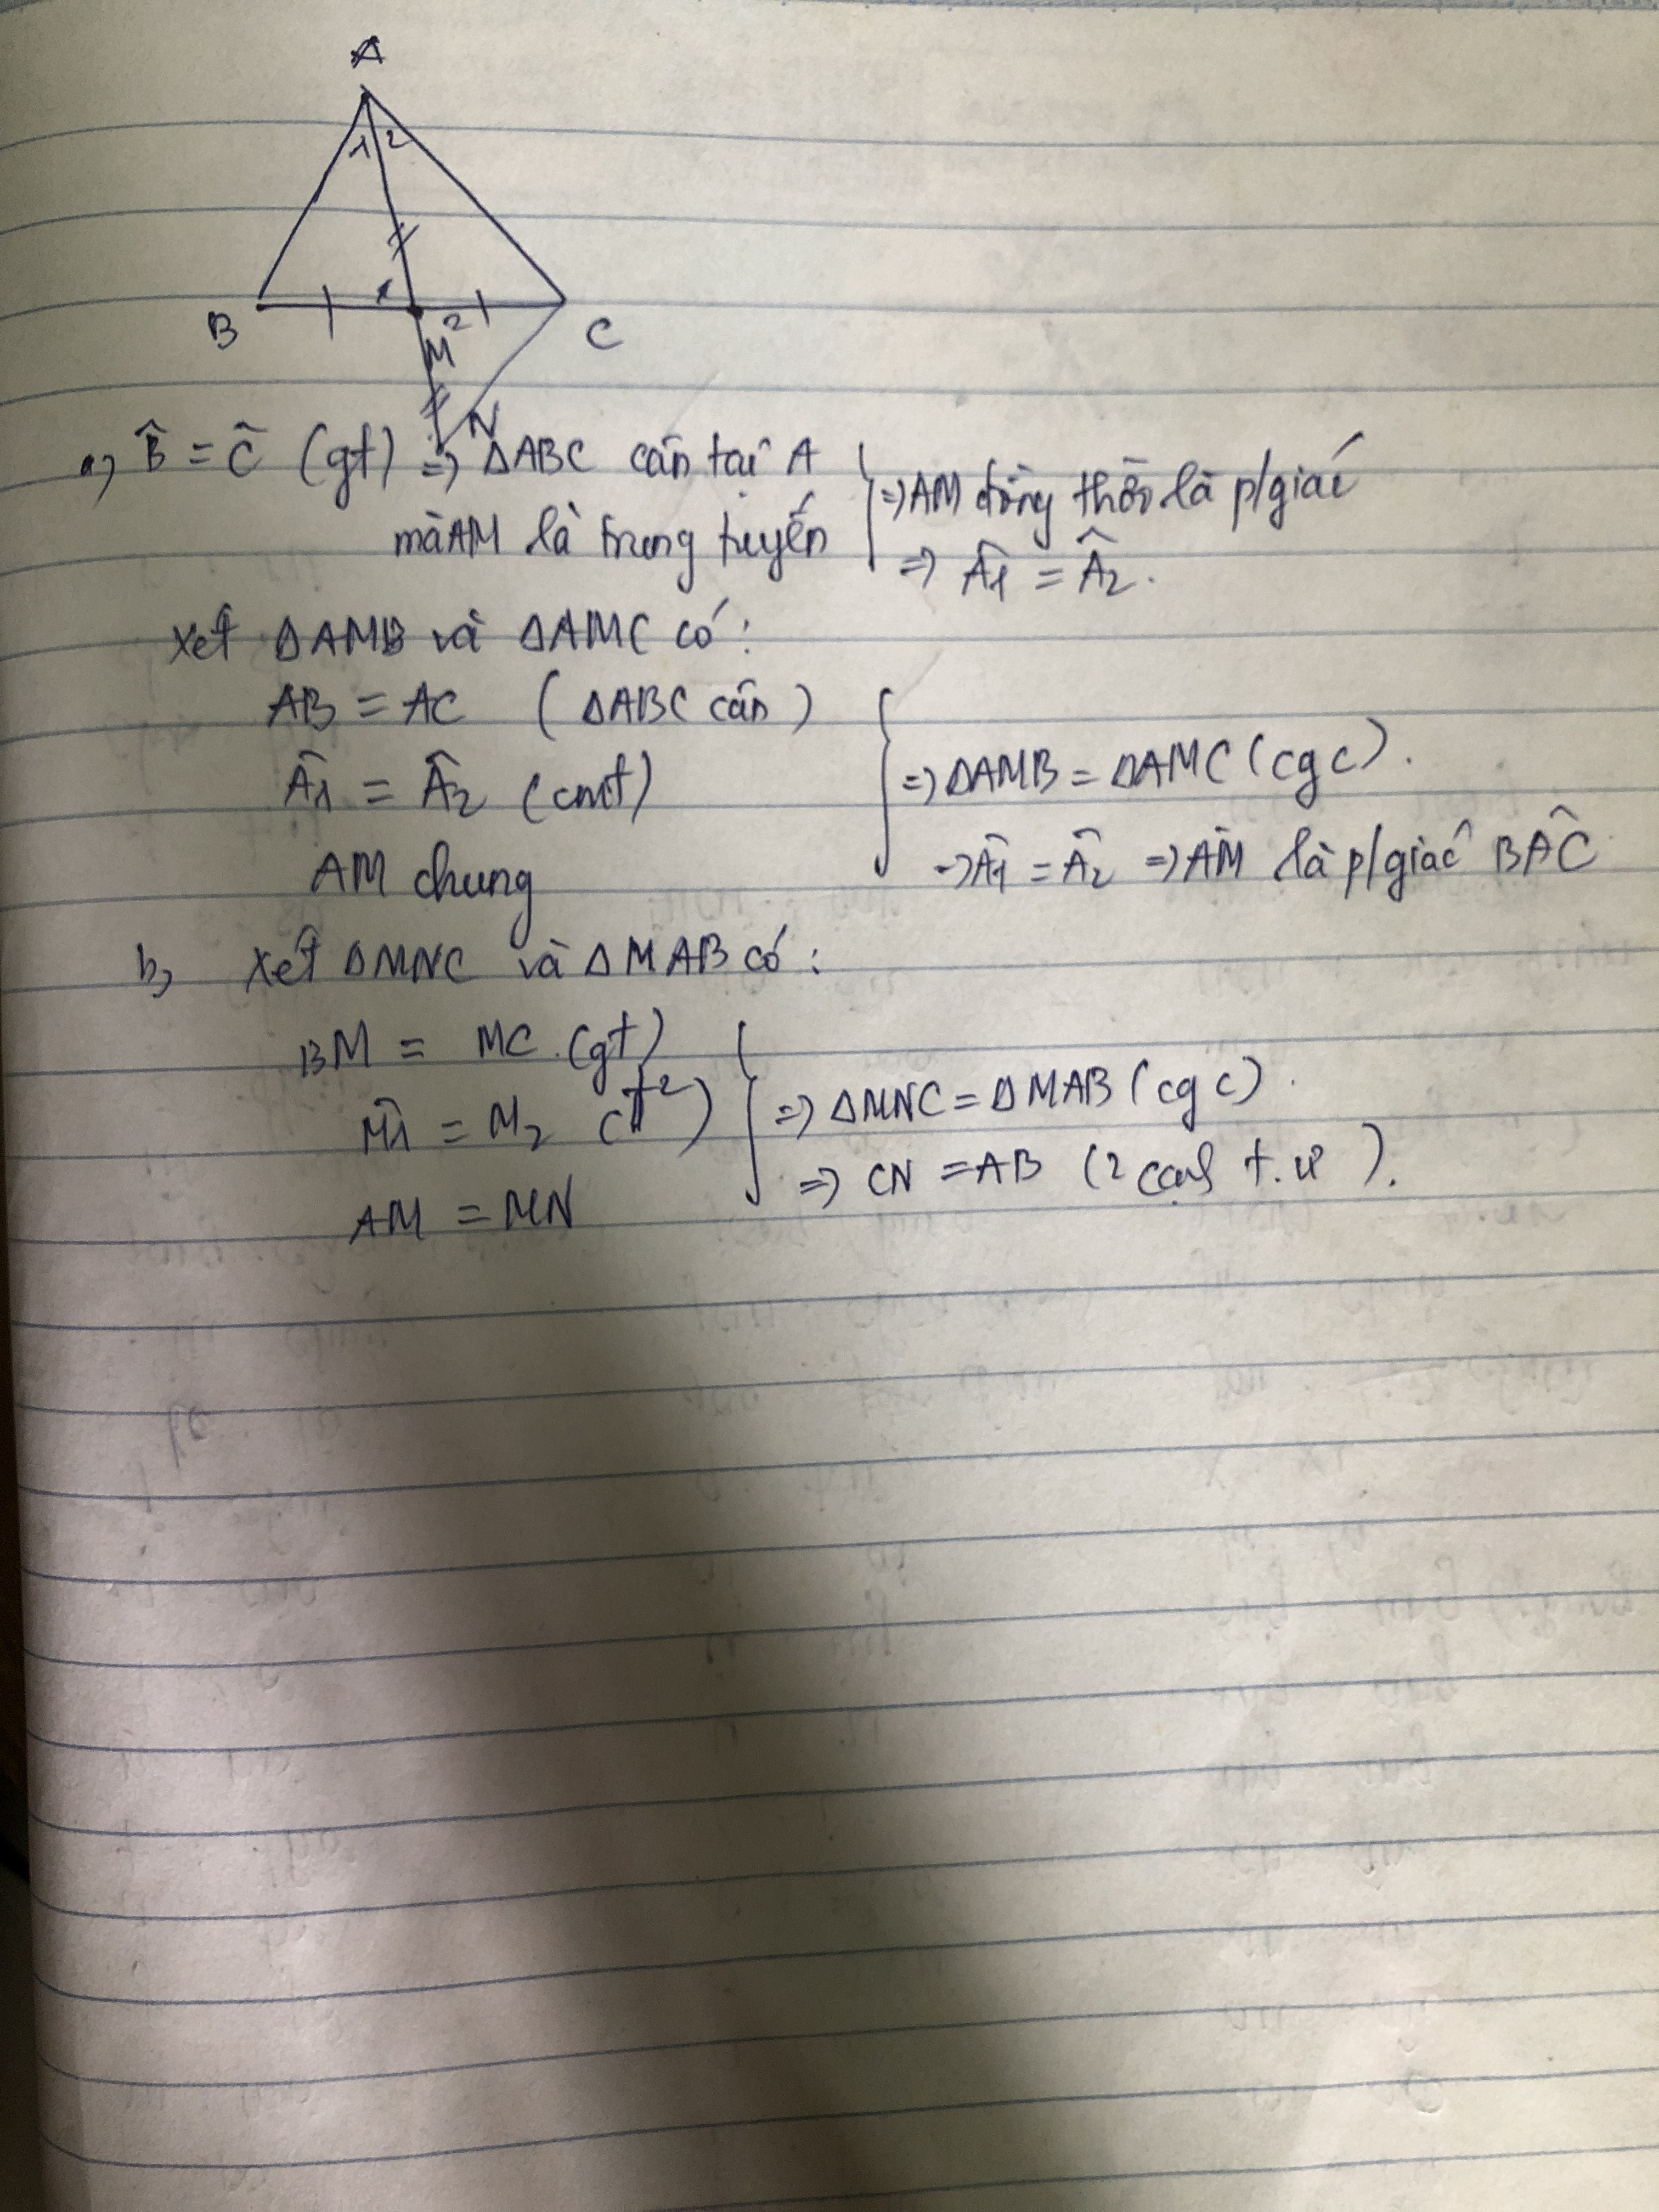 A
1 2
1
B 2 C
M
N
a, B̂ = Ĉ (gt) => ΔABC cân tại A
mà AM là trung tuyến
=> AM đồng thời là p/giác
=> Â1 = Â2.
Xét ΔAMB và ΔAMC có:
AB = AC (ΔABC cân)
Â1 = Â2 (cmt)
AM chung
=> ΔAMB = ΔAMC (cgc).
=> Â1 = Â2 => AM là p/giác BÂC
b, Xét ΔMNC và ΔMAB có:
BM = MC (gt)
M̂1 = M2
AM = MN
=> ΔMNC = ΔMAB (cgc).
=> CN = AB (2 cạnh t.ư).